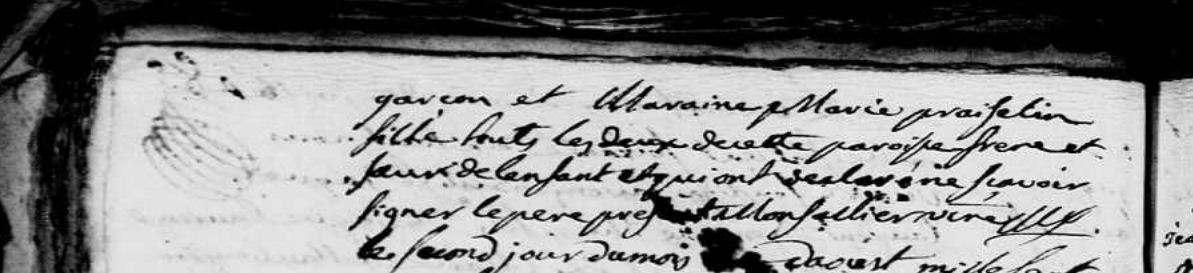 garçon et Maraine Marie praiselin
fille touts les deux de cette paroisse frere et
sœur de lenfant et qui ont declaré ne sçavoir
signer le pere present
le second jour du mois daoust mille sept